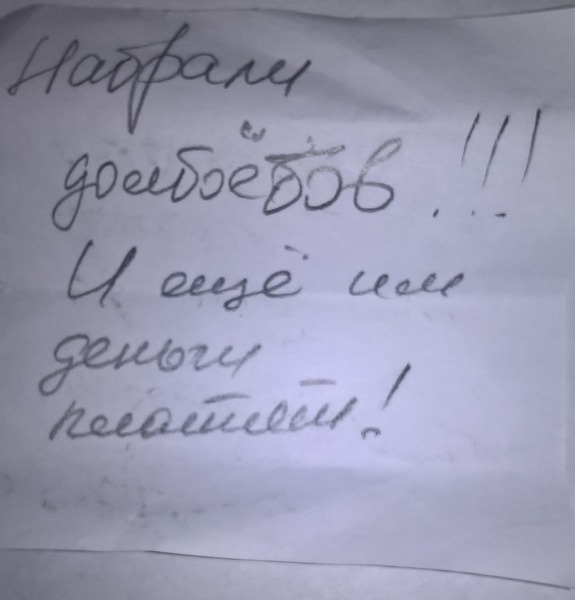 Набрали
долбоёбов!!!
И ещё им
деньги
платят!